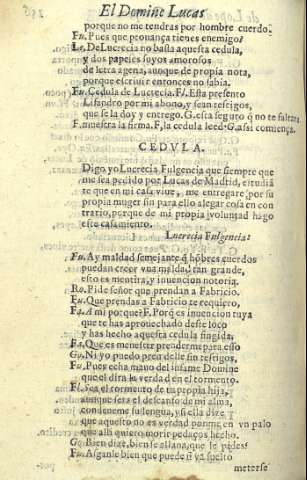 El Domine Lucas
porque no me tendras por hombre cuerdo.
Fu. Pues que prouança tienes enemigo?
Lu. De Lucrecia no basta aquesta cedula,
y dos papeles suyos amorosos
de letra agena, aunque de propia nota,
porque escriuir entonces no sabia.
Fu. Cedula de Lucrecia. Fl. Esta presento
Lisandro por mi abono, y sean testigos,
que se la doy y entrego. G. esta seguro q no te faltara.
F. muestra la firma. F, la cedula leed. G. assi comiença.
CEDVLA.
Digo yo Lucrecia Fulgencia que siempre que
me sea pedido por Lucas de Madrid, estudiã
te que en mi casa viue, me entregare por su
propia muger sin para ello alegar cosa en con
trario, porque de mi propia voluntad hago
este casamiento.
Lucrecia Fulgencia:
Fu. Ay maldad semejante q hõbres cuerdos
puedan creer vna maldad tan grande,
esto es mentira, y inuencion notoria.
Ro. Pide señor que prendan a Fabricio.
Fu. Que prendas a Fabricio te requiero,
Fa. A mi porque? F. Porq es inuencion tuya
que te has aprouechado deste loco
y has hecho aquesta cedula fingida
Fa. Que es menester prenderme para esso
Go. Ni yo puedo prendelle sin testigos,
Fu. Pues echa mano del infame Domine
que el dira la verdad en el tormento.
Fl. Sea el tormento de tu propia hija,
aunque sera el descanso de mi alma,
condeneme su lengua, y si ella dize
que aquesto no es verdad ponme en vn palo
que alli quiero morir pedaços hecho.
Go. Bien dize, bien se allana, que le pedis?
Fa. Asganle bien que puede si ya suelto
meterse